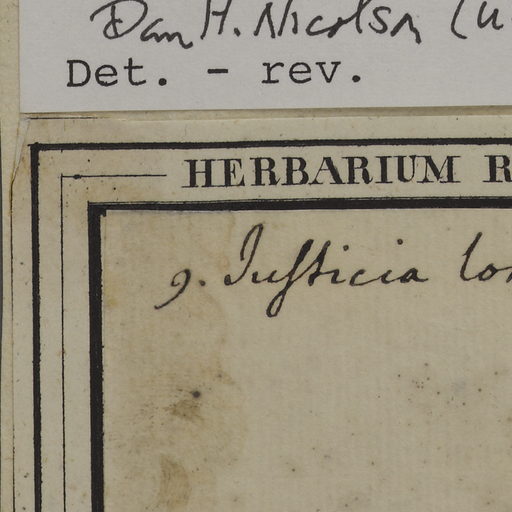 Dan H. Nicolson (U
Det. - rev.
HERBARIUM R
9. Justicia lon